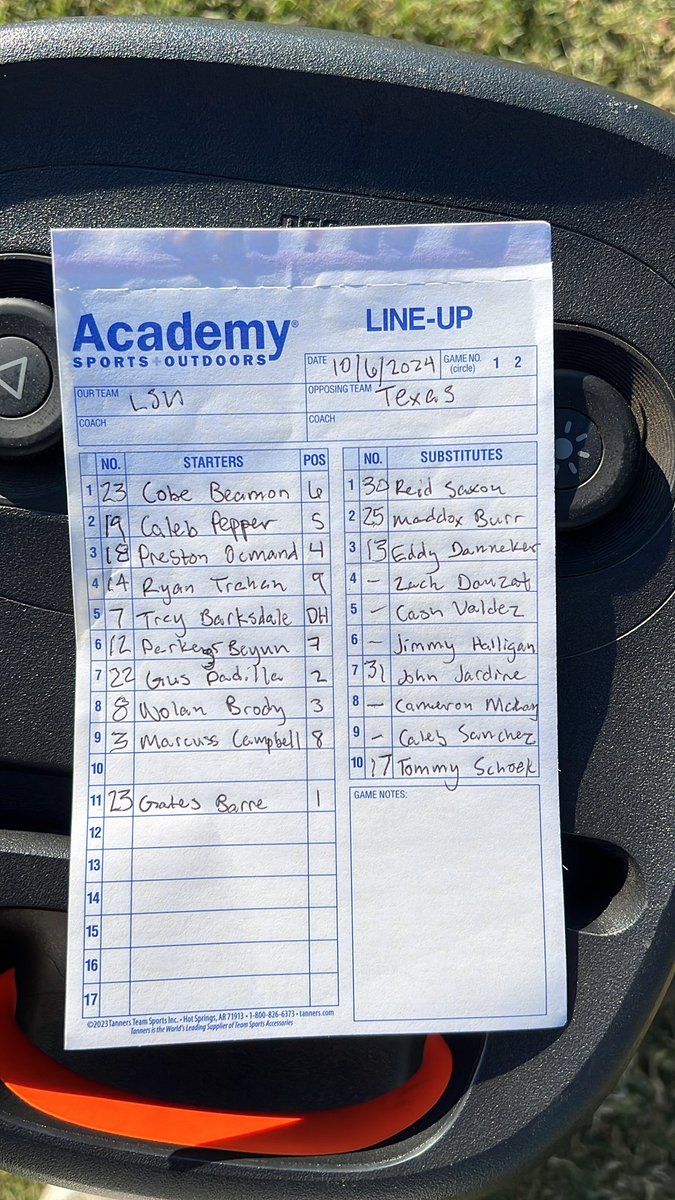 Academy®
SPORTS+OUTDOORS
LINE-UP
DATE 10/6/2024 GAME NO. (circle) 1 2
OUR TEAM LSU
OPPOSING TEAM Texas
COACH
COACH
NO. STARTERS POS
1 23 Cobe Beamon 6
2 19 Caleb Pepper 5
3 18 Preston Ocmand 4
4 14 Ryan Trahan 9
5 7 Trey Barksdale DH
6 12 Parker Beyun 7
7 22 Gus Padilla 2
8 8 Nolan Brody 3
9 3 Marcuss Campbell 8
10
11 23 Gates Barre 1
12
13
14
15
16
17
NO. SUBSTITUTES
1 30 Reid Saxon
2 25 Maddox Burr
3 13 Eddy Danneker
4 - Zach Dauzat
5 - Cash Valdez
6 - Jimmy Halligan
7 31 John Jardine
8 - Cameron McKay
9 - Caleb Sanchez
10 17 Tommy Schoek
GAME NOTES:
©2023 Tanners Team Sports Inc. • Hot Springs, AR 71913 • 1-800-826-6373 • tanners.com
Tanners is the World's Leading Supplier of Team Sports Accessories